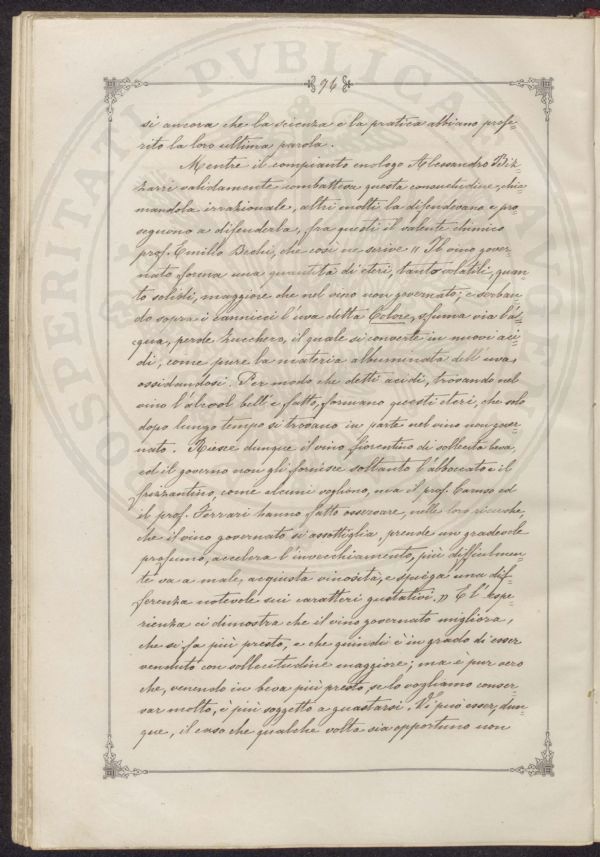 96
si ancora che la scienza e la pratica abbiano profe=
rito la loro ultima parola.
Mentre il compianto enologo Alessandro Biz=
zarri validamente combatteva questa consuetudine, chia
mandola irrazionale, altri molti la difendevano e pro=
seguono a difenderla, fra questi il valente chimico
prof. Emilio Bechi, che così ne scrive „ Il vino gover=
nato forma una quantità di eteri, tanto volatili, quan=
to solidi, maggiore che nel vino non governato; e serban=
do sopra i cannicci l'uva detta Colore, sfuma via l'ac=
qua, perde zucchero, il quale si converte in nuovi aci=
di, come pure la materia albuminata dell'uva,
ossidandosi. Per modo che detti acidi, trovando nel
vino l'alcool bell'e fatto, formano questi eteri, che solo
dopo lungo tempo si trovano in parte nel vino non gover=
nato. Riesce dunque il vino fiorentino di sollecita beva,
ed il governo non gli fornisce soltanto l'abboccato e il
frizzantino, come alcuni vogliono, ma il prof. Caruso ed
il prof. Ferrari hanno fatto osservare, nelle loro ricerche,
che il vino governato si assottiglia, prende un gradevole
profumo, accelera l'invecchiamento, più difficilmen=
te va a male, acquista vinosità, e spiega una dif=
ferenza notevole sui caratteri gustativi. „ E l'espe=
rienza ci dimostra che il vino governato migliora,
che si fa più presto, e che quindi è in grado di esser
venduto con sollecitudine maggiore; ma è pur vero
che, venendo in beva più presto, se lo vogliamo conser=
var molto, è più soggetto a guastarsi. Vi può esser, dun=
que, il caso che qualche volta sia opportuno non
PROSPERITATI PVBLICAE AVGENDAE